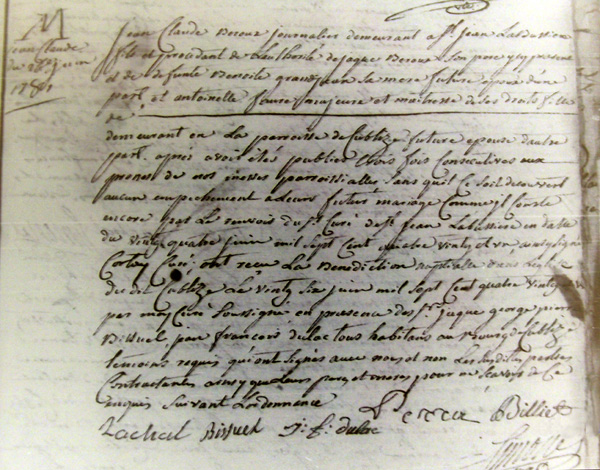 M
Jean Claude
du 26e juin
1781
Jean Claude Deroux journalier demeurant a St jean Labussiere
fils et procédant de l'authorité de jaque Deroux son pere y present
et de defunte Benoite sa mere futur epoux d'une
part, et antoinette faure majeure et maitresse de ses droits fille
de
demeurant en La parroisse de Cublize future epouse d'autre
part. après avoir été publier trois fois consecutives aux
prones de nos messes parroissialles sans qu'il ce soit decouvert
aucun empechement a leurs futur mariage Comme il Conste
encore par Le renvois du sr Curé de st jean Labussiere en datte
du vingt quatre juin mil sept Cent quatre vingt et un
Curé, ont recu La Benediction nuptialle dans L'eglise
du dit Cublize Le vingt six juin mil sept Cent quatre vingt
par moy Curé soussigné en presence des srs jaque george pierre
Bissuel, jean françois dulac tous habitans au Bourg de Cublize
temoins requis qui ont signés avec moy et non Les susdites parties
Contractantes ainsy que Leurs pere et mere pour ne scavoir de Ce
enquis suivant L'ordonnance
Perra Billiet
Lachal Bissuel J. f. dulac